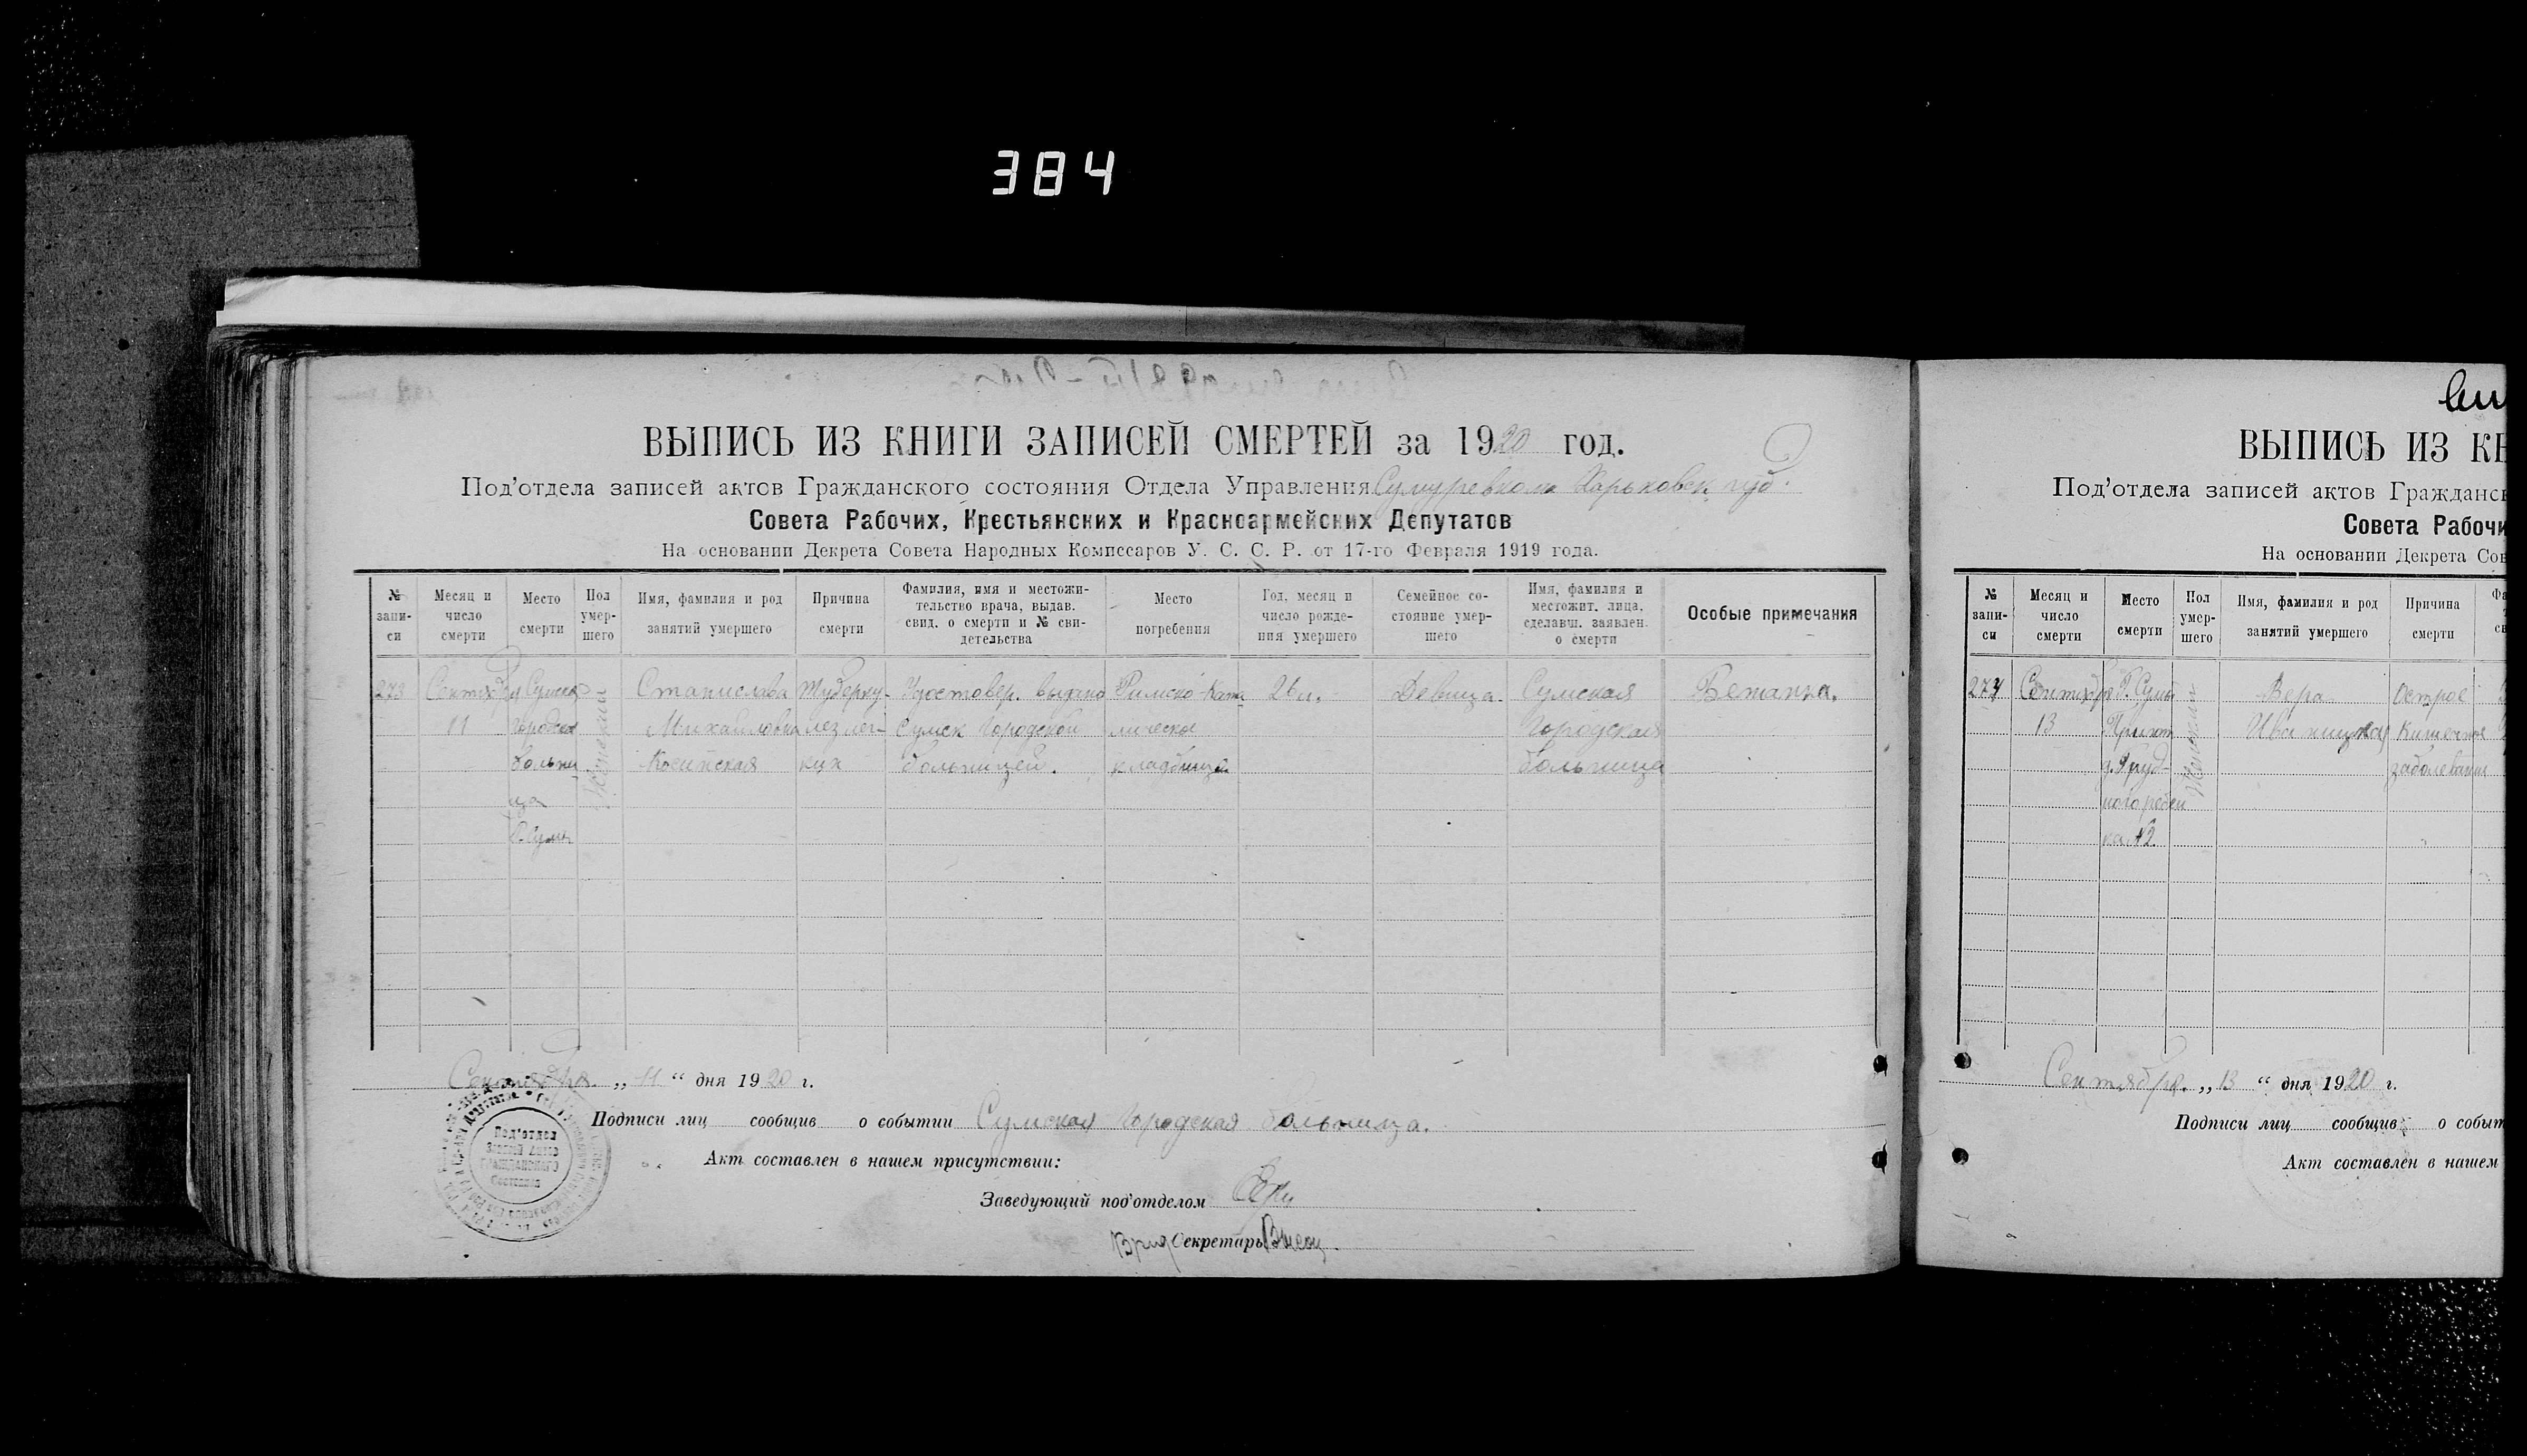 384
ВЫПИСЬ ИЗ КНИГИ ЗАПИСЕЙ СМЕРТЕЙ за 1920 год.
Под'отдела записей актов Гражданского состояния Отдела Управления Сумуревкома Харьковск. губ.
Совета Рабочих, Крестьянских и Красноармейских Депутатов
На основании Декрета Совета Народных Комиссаров У. С. С. Р. от 17-го Февраля 1919 года.
№ запи-си
Месяц и число смерти
Место смерти
Пол умер-шего
Имя, фамилия и род занятий умершего
Причина смерти
Фамилия, имя и местожи-тельство врача, выдав. свид. о смерти и № сви-детельства
Место погребения
Год, месяц и число рожде-ния умершего
Семейное со-стояние умер-шего
Имя, фамилия и местожит. лица, сделавш. заявлен. о смерти
Особые примечания
273 Сентября Сумская Станислава Туберку- Удостовер. выдано Римско-Като 26 л. Девица. Сумская
11 городская Женский Михайловна лез лег- Сумск Городской лическое Городская
больни ких больницей. кладбище больница
ца
г. Сумы
Сентября „11“ дня 1920 г.
Подписи лиц сообщив о событии Сумская Городская больница.
Акт составлен в нашем присутствии:
Заведующий под'отделом
Врид Секретарь
Под'отдел
Записей Актов
ГРАЖДАНСКОГО
Состояния
ВЫПИСЬ ИЗ КН
Под'отдела записей актов Гражданск
Совета Рабочи
На основании Декрета Сов
№ запи-си
Месяц и число смерти
Место смерти
Пол умер-шего
Имя, фамилия и род занятий умершего
Причина смерти
274 Сентября г. Сумы Вера Острое
13 Приют Женский Иваницкая Кишечное
д. Груд- заболевание
ного ребен
ка №2.
Сентября. „13“ дня 1920 г.
Подписи лиц сообщив о событ
Акт составлен в нашем